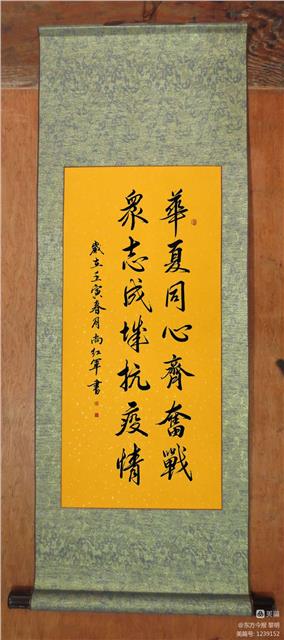 華夏同心齊奮戰
衆志成城抗疫情
歲在壬寅春月尚红军書
美篇
@东方今报 黎明
美篇号: 1239152